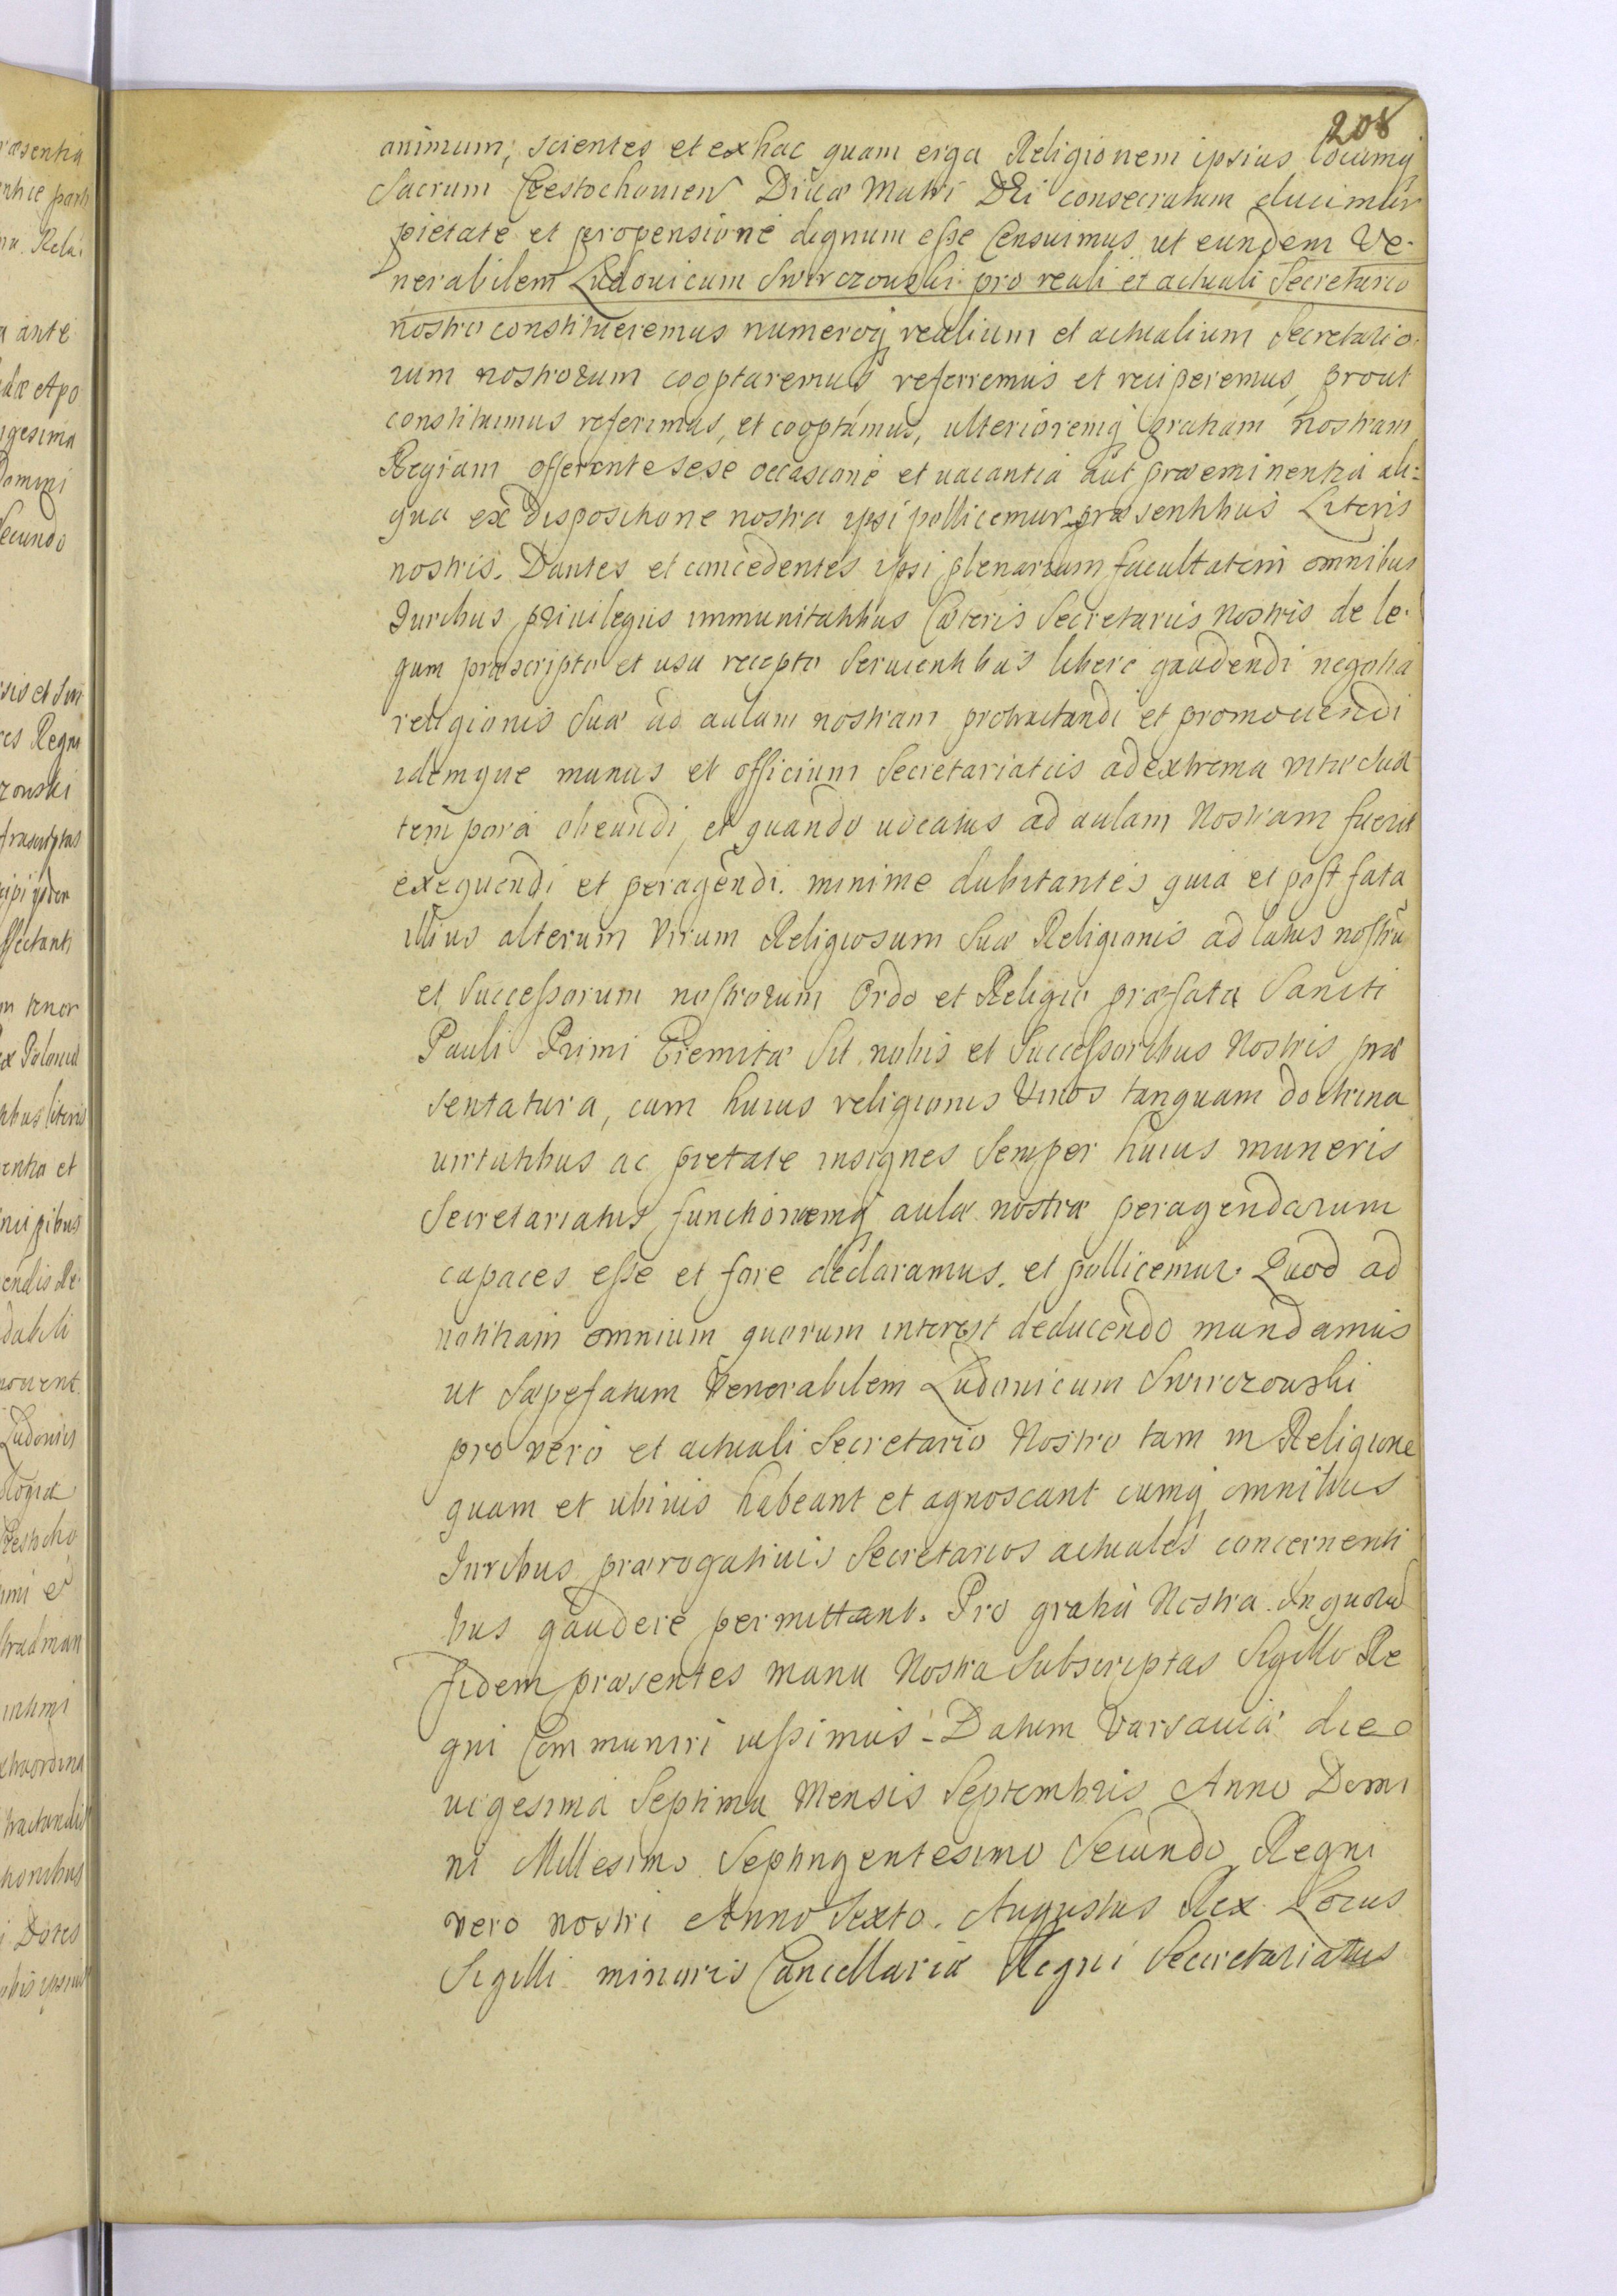 208
animum, scientes et ex hac quam erga Religionem ipsius locumq
Sacrum Czestochovien Divæ Matri DEi consecratum ducimur
pietate et propensione dignum esse Censuimus ut eundem Ve-
nerabilem Ludovicum Swirczowski pro reali et actuali Secretario
nostro constitueremus numeroq realium et actualium Secretario-
rum nostrorum cooptaremus, referremus et reciperemus, prout
constituimus referimus, et cooptamus, ulterioremq gratiam nostram
Regiam offerente sese occasione et vacantia aut præeminentia ali=
qua ex dispositione nostra ipsi pollicemur præsentibus Literis
nostris. Dantes et concedentes ipsi plenariam facultatem omnibus
Juribus privilegiis immunitatibus Cæteris Secretariis nostris de le-
gum præscripto et usu recepto Servientibus libere gaudendi negotia
religionis Suæ ad aulam nostram protractandi et promovendi
idemque munus et officium Secretariatus ad extrema vitæ Suæ
tempora obeundi, et quando vocatus ad aulam Nostram fuerit
exequendi et peragendi. minime dubitantes quia et post fata
illius alterum Virum Religiosum Suæ Religionis ad latus nostru
et Successorum nostrorum Ordo et Religio præfata Sancti
Pauli Primi Eremitæ Sit nobis et Successoribus Nostris præ
sentatura, cum huius religionis Viros tanquam doctrina
virtutibus ac pietate insignes Semper huius muneris
Secretariatus functionumq aulæ nostræ peragendarum
capaces esse et fore declaramus. et pollicemur. Quod ad
notitiam omnium quorum interest deducendo mandamus
ut Sæpefatum Venerabilem Ludovicum Swirczowski
pro vero et actuali Secretario Nostro tam in Religione
quam et ubivis habeant et agnoscant eumq omnibus
Juribus prærogativis Secretarios actuales concernenti
bus gaudere permittant. Pro gratia Nostra. In quoru
fidem præsentes manu Nostra Subscriptas Sigillo Re
gni Communiri iussimus. Datum Varsaviæ die
vigesima Septima Mensis Septembris Anno Domi
ni Millesimo Septingentesimo Secundo Regni
vero nostri Anno Sexto. Augustus Rex. Locus
Sigilli minoris Cancellariæ Regni Secretariatus